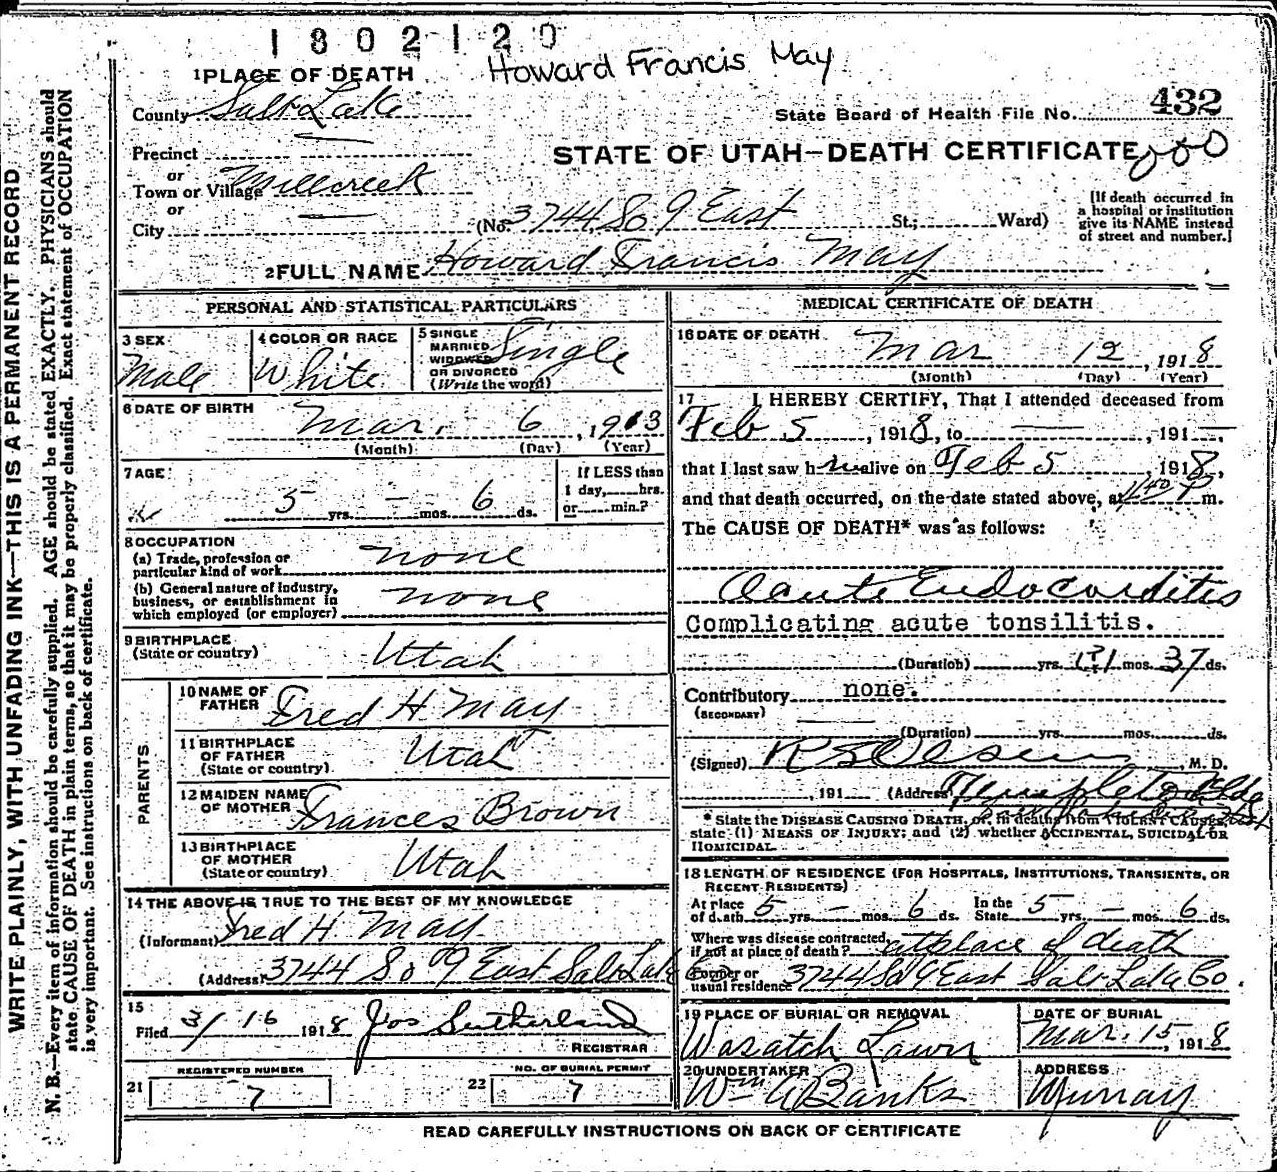 1802120
Howard Francis May
1 PLACE OF DEATH
County Salt Lake
State Board of Health File No. 432
Precinct
STATE OF UTAH—DEATH CERTIFICATE
or
Town or Village Millcreek
or
City
(No. 3744 So 9 East St.; Ward)
[If death occurred in
a hospital or institution
give its NAME instead
of street and number.]
2 FULL NAME Howard Francis May
PERSONAL AND STATISTICAL PARTICULARS
3 SEX
Male
4 COLOR OR RACE
White
5 SINGLE
MARRIED
WIDOWED
OR DIVORCED
(Write the word)
Single
6 DATE OF BIRTH
Mar. 6, 1913
(Month) (Day) (Year)
7 AGE
5 yrs. — mos. 6 ds.
If LESS than
1 day, hrs.
or min.?
8 OCCUPATION
(a) Trade, profession or
particular kind of work none
(b) General nature of industry,
business, or establishment in
which employed (or employer) none
9 BIRTHPLACE
(State or country) Utah
PARENTS
10 NAME OF
FATHER Fred H May
11 BIRTHPLACE
OF FATHER
(State or country) Utah
12 MAIDEN NAME
OF MOTHER Frances Brown
13 BIRTHPLACE
OF MOTHER
(State or country) Utah
14 THE ABOVE IS TRUE TO THE BEST OF MY KNOWLEDGE
(Informant) Fred H. May
(Address) 3744 So 9 East Salt Lake Co
15
Filed 3/16 1918 Jos Sutherland
REGISTRAR
REGISTERED NUMBER
21 7
NO. OF BURIAL PERMIT
22 7
MEDICAL CERTIFICATE OF DEATH
16 DATE OF DEATH
Mar 12, 1918
(Month) (Day) (Year)
17 I HEREBY CERTIFY, That I attended deceased from
Feb 5, 1918, to —, 191—,
that I last saw him alive on Feb 5, 1918,
and that death occurred, on the date stated above, at 1140 P m.
The CAUSE OF DEATH* was as follows:
Acute Endocarditis
Complicating acute tonsilitis.
(Duration) yrs. (?) mos. 37 ds.
Contributory none.
(SECONDARY)
(Duration) yrs. mos. ds.
(Signed) M. D.
, 191 (Address) Templeton Bldg
* State the DISEASE CAUSING DEATH, or, in deaths from VIOLENT CAUSES,
state (1) MEANS OF INJURY; and (2) whether ACCIDENTAL, SUICIDAL OR
HOMICIDAL.
18 LENGTH OF RESIDENCE (FOR HOSPITALS, INSTITUTIONS, TRANSIENTS, OR
RECENT RESIDENTS)
At place
of death 5 yrs. — mos. 6 ds. In the
State 5 yrs. — mos. 6 ds.
Where was disease contracted,
if not at place of death? at place of death
Former or
usual residence 3744 So 9 East Salt Lake Co.
19 PLACE OF BURIAL OR REMOVAL
Wasatch Lawn
DATE OF BURIAL
Mar. 15, 1918
20 UNDERTAKER
Wm A Banks
ADDRESS
Murray
READ CAREFULLY INSTRUCTIONS ON BACK OF CERTIFICATE
WRITE PLAINLY, WITH UNFADING INK—THIS IS A PERMANENT RECORD
N. B.—Every item of information should be carefully supplied. AGE should be stated EXACTLY. PHYSICIANS should
state CAUSE OF DEATH in plain terms, so that it may be properly classified. Exact statement of OCCUPATION
is very important. See instructions on back of certificate.